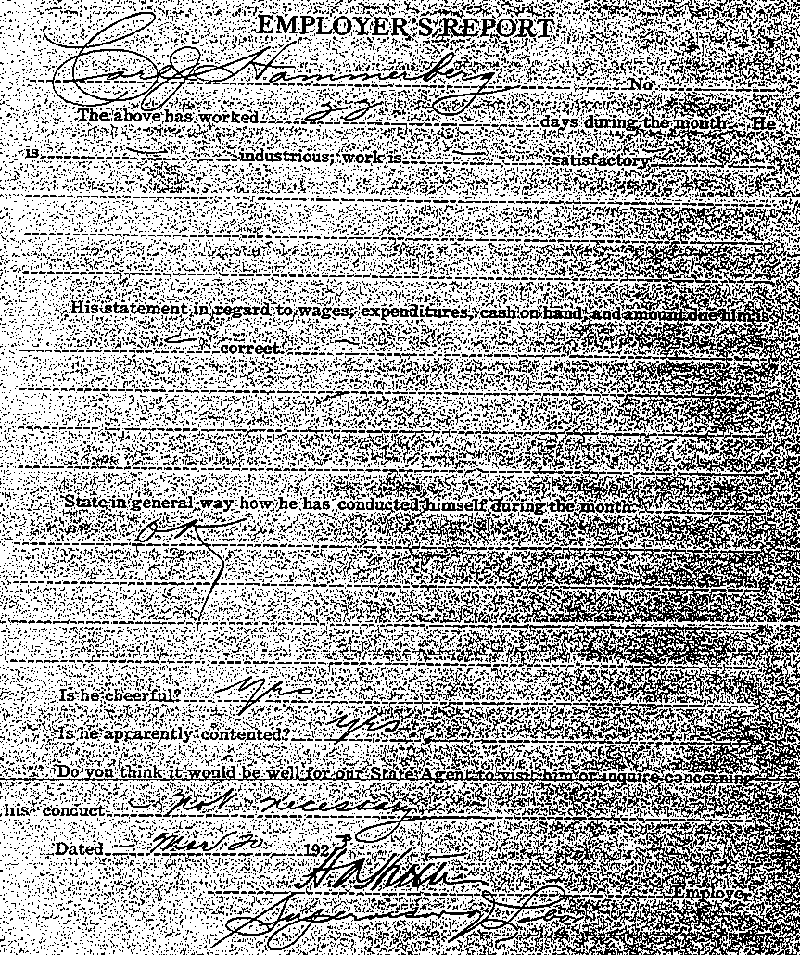 EMPLOYER'S REPORT
Carl J Hammerberg No
The above has worked 22 days during the month. He
is industrious; work is satisfactory
His statement in regard to wages, expenditures, cash on hand, and amount due him is
correct.
State in general way how he has conducted himself during the month
O.K.
Is he cheerful? yes
Is he apparently contented? yes
Do you think it would be well for our State Agent to visit him or inquire concerning
his conduct not necessary
Dated Mar 20 1923
Employer